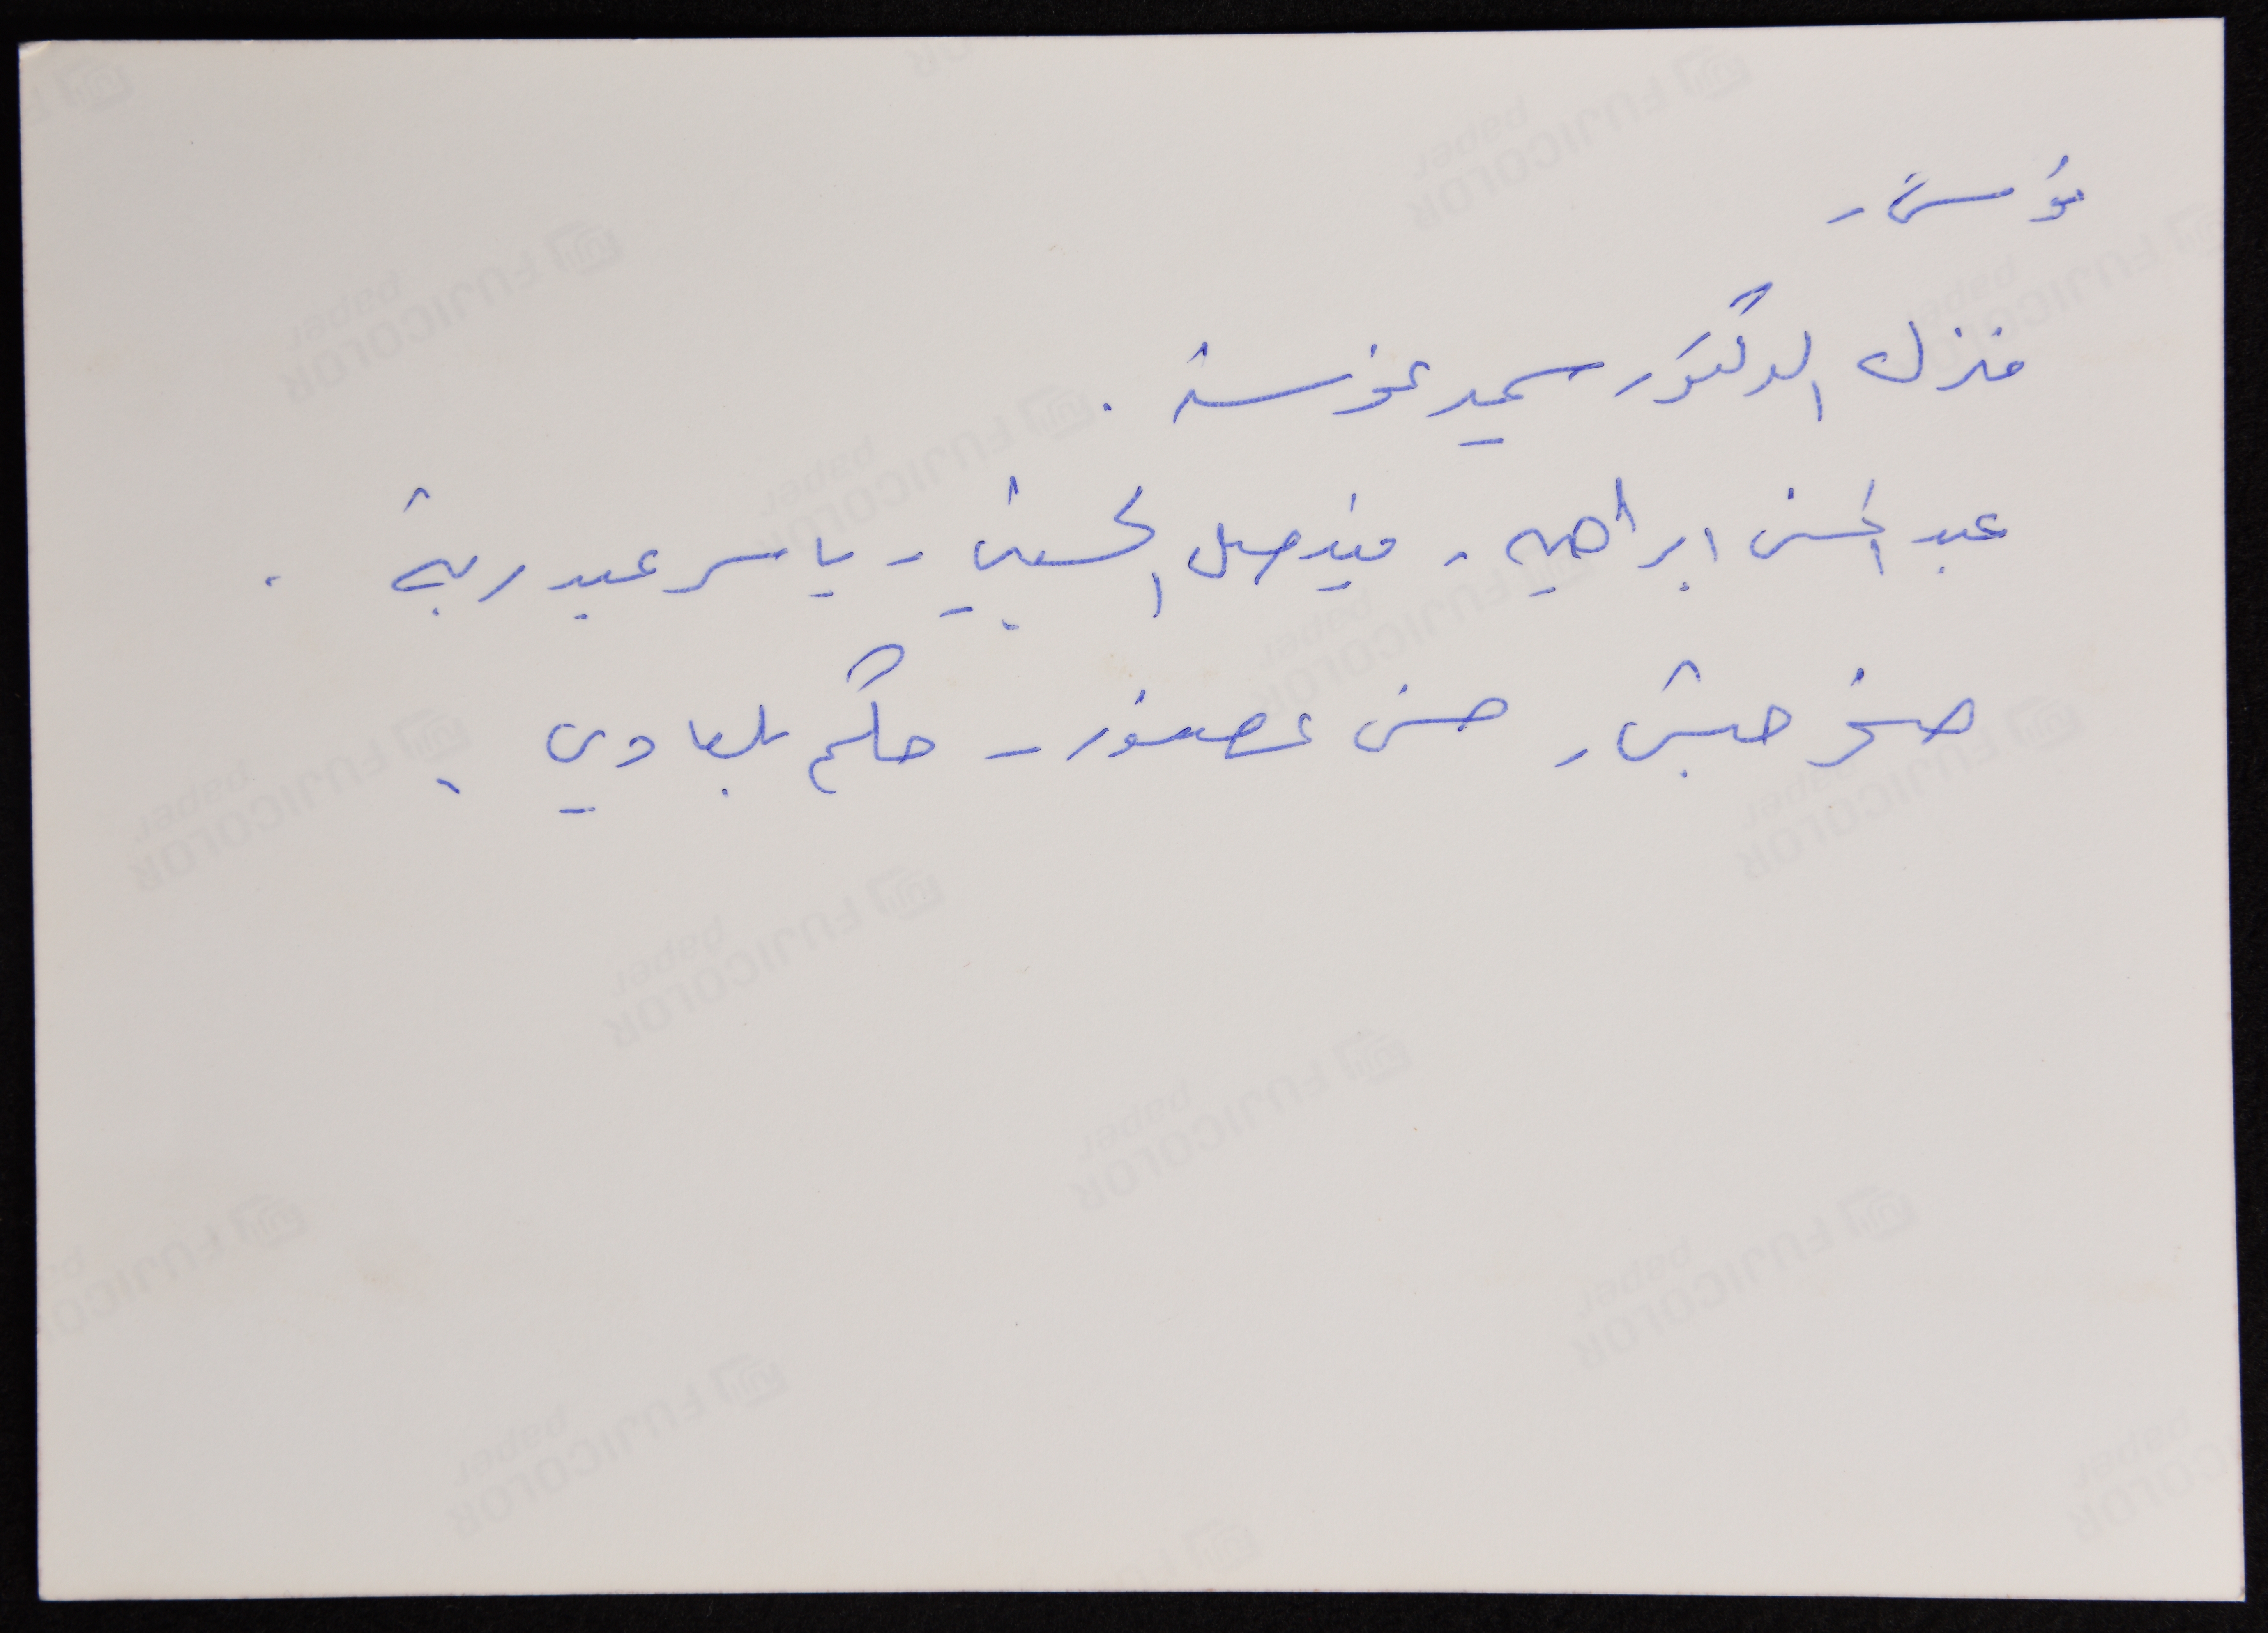 تونس -
منزل الدكتور سمير غوشة .
عبد المحسن ابراهيم - فيصل الحسيني - ياسر عبد ربه .
صخر حبش - حسن عصفور - حكم بلعاوي .
FUJICOLOR paper